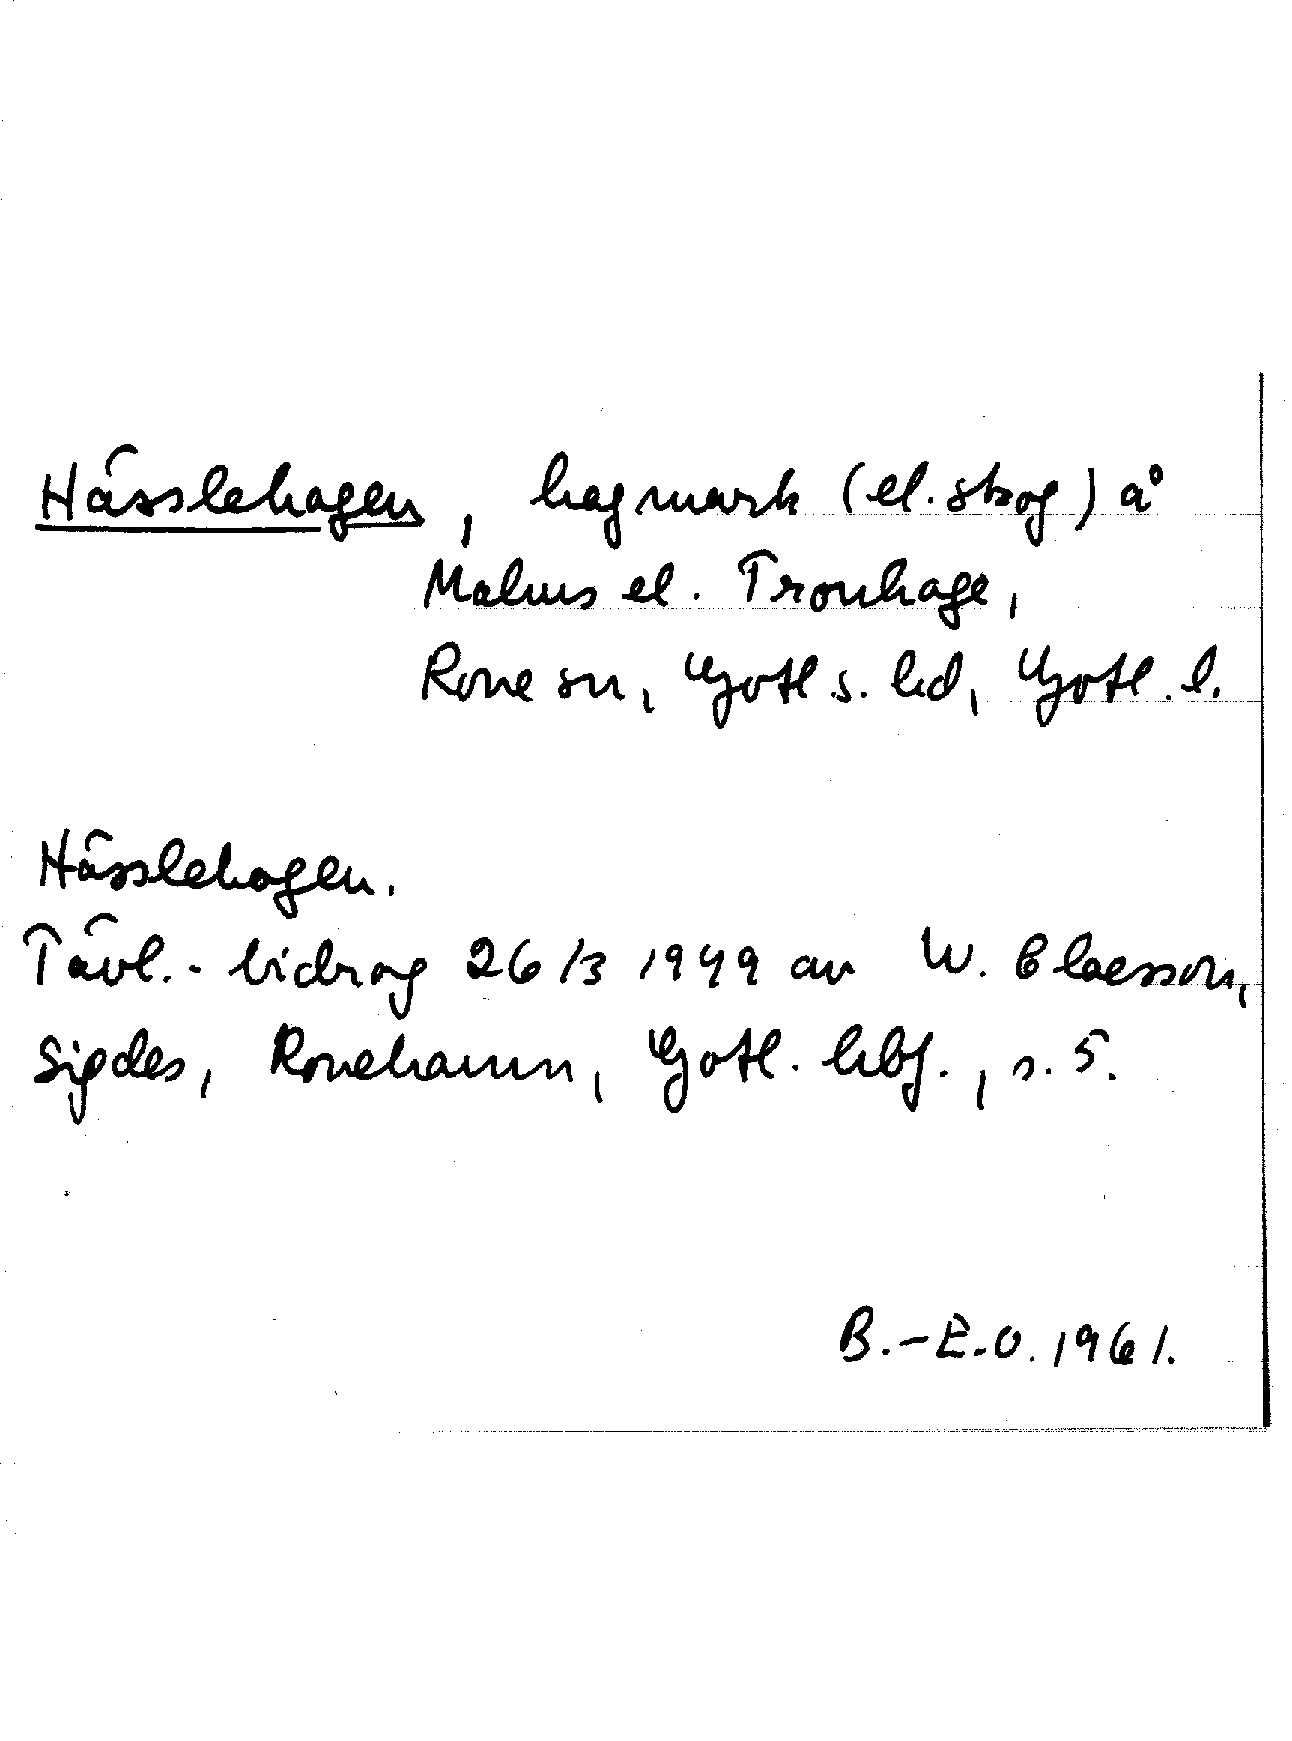 Hässlehagen, hagmark (el. skog) å
Malms el. Tronhage,
Rone sn, Gotl s. hd, Gotl. l.
Hässlehagen.
Tävl.-bidrag 26/3 1949 av W. Claesson,
Sigdes, Ronehamn, Gotl. hbf., s. 5.
B.-E.O. 1961.